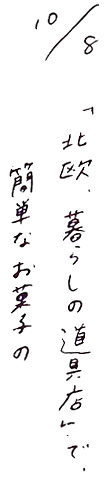 10/8
「北欧、暮らしの道具店」で、
簡単なお菓子の